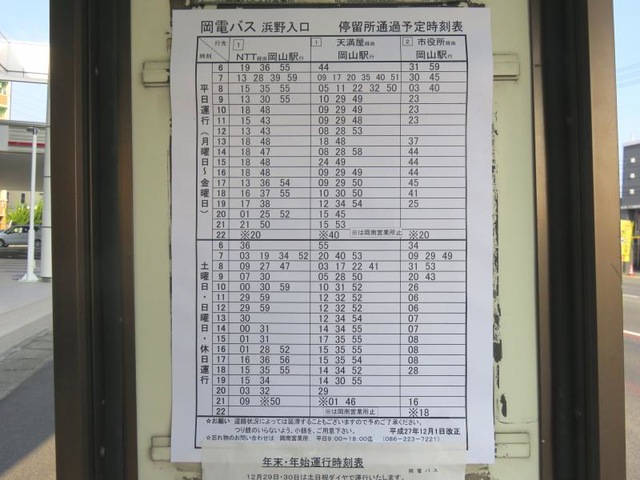 岡電バス 浜野入口 停留所通過予定時刻表
行先 1 1 2
時刻 NTT経由岡山駅行 天満屋経由岡山駅行 市役所経由岡山駅行
平日運行(月曜日~金曜日)
6 19 36 55 44 31 59
7 13 28 39 59 09 17 20 35 40 51 30 45
8 15 35 55 05 11 22 32 50 03 40
9 13 30 55 10 29 49 23
10 18 48 09 29 49 23
11 15 43 09 29 48 23
12 13 43 08 28 53
13 18 48 18 48 37
14 18 47 08 28 58 44
15 18 48 24 49 44
16 18 48 09 29 49 44
17 13 36 54 09 29 50 45
18 16 37 55 10 30 50 41
19 17 38 12 34 54 25
20 01 25 52 15 45
21 21 50 15 53
22 ※20 ※40 ※は岡南営業所止 ※20
土曜日・日曜日・休日運行
6 36 55 34
7 03 19 34 52 20 40 53 09 29 49
8 09 27 47 03 17 22 41 31 53
9 07 30 05 28 50 20 43
10 00 30 59 10 31 52 26
11 29 59 12 32 52 06
12 29 59 12 32 52 06
13 30 12 34 54 07
14 00 31 14 34 55 07
15 01 31 17 35 55 08
16 01 28 52 15 35 55 08
17 16 36 56 15 35 54 08
18 15 35 55 14 34 52 28
19 15 34 14 30 55
20 03 32 29
21 09 ※50 ※01 46 16
22 ※は岡南営業所止 ※18
☆お願い 道路状況によっては延滞することもございますので予めご了承ください。
つり銭のいらないよう、小銭を、ご用意下さい。 平成27年12月1日改正
☆忘れ物のお問い合わせは 岡南営業所 平日9:00~18:00迄 (086-223-7221)
年末・年始運行時刻表
岡電バス
12月29日・30日は土日祝ダイヤで運行いたします。